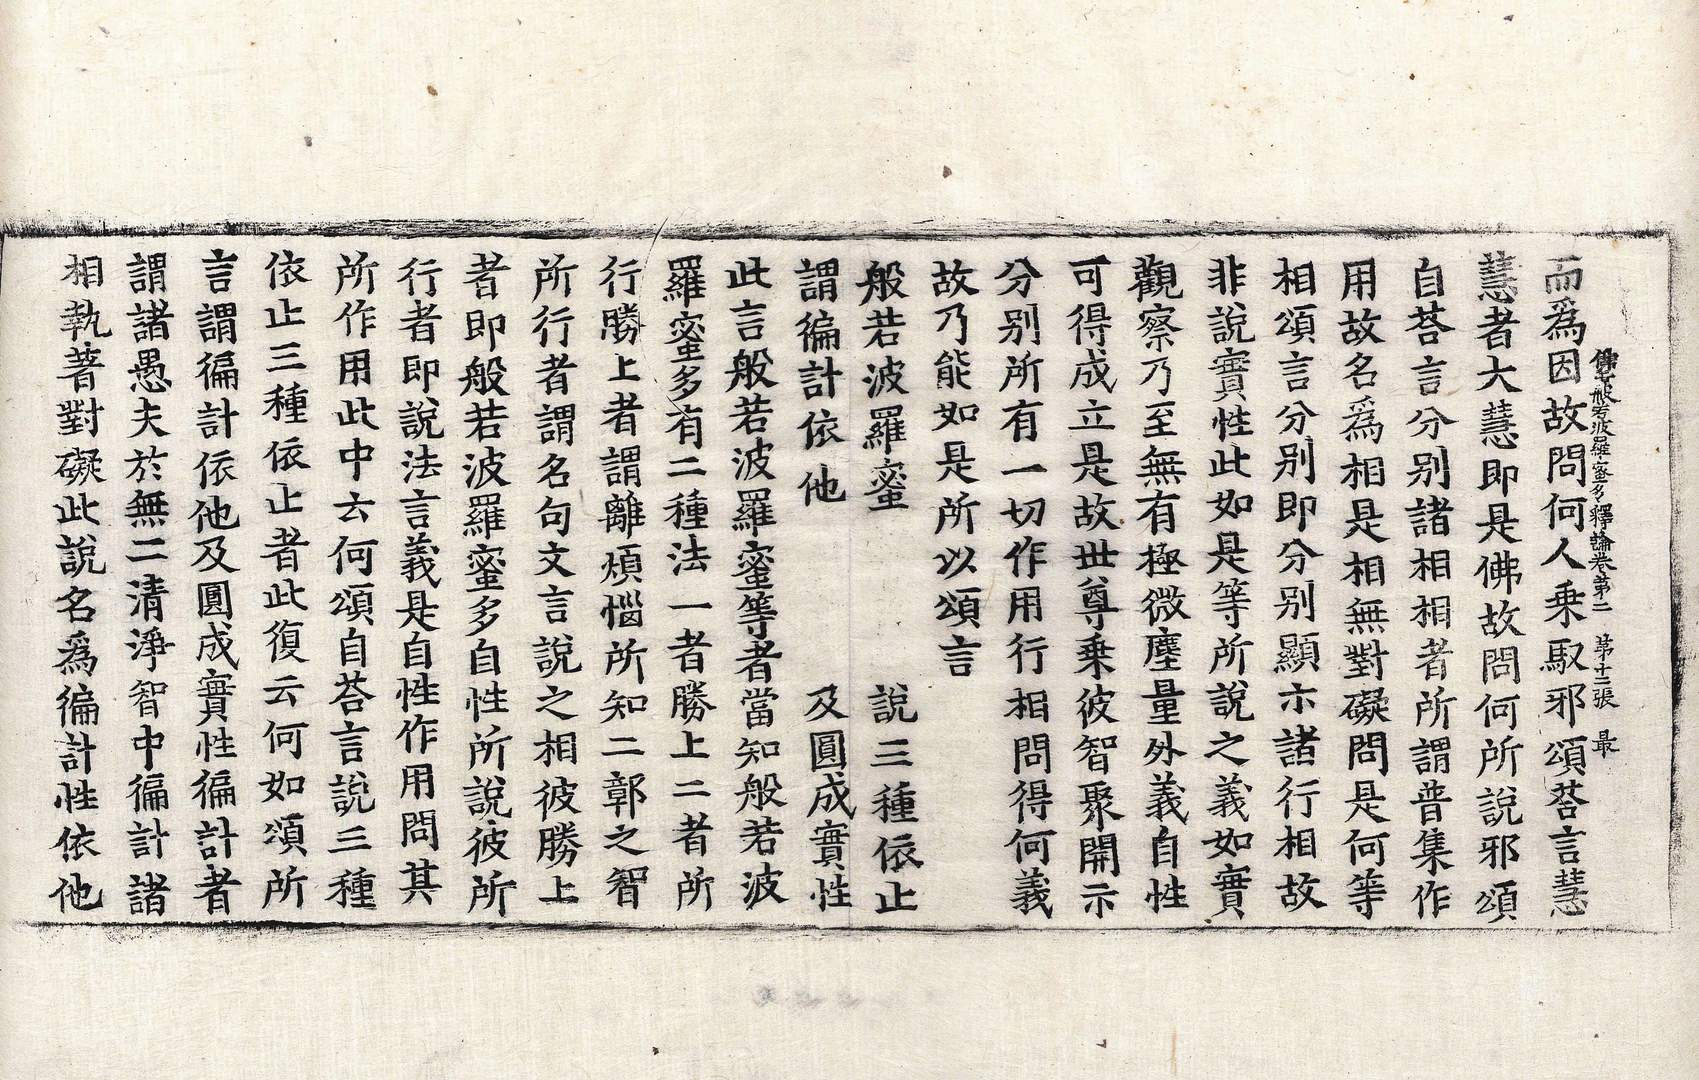 佛母般若波羅蜜多釋論卷第二　第十二張　最
而爲因故問何人乘馭邪頌荅言慧
慧者大慧即是佛故問何所說邪頌
自荅言分别諸相相者所謂普集作
用故名爲相是相無對礙問是何等
相頌言分别即分别顯示諸行相故
非說實性此如是等所說之義如實
觀察乃至無有極微塵量外義自性
可得成立是故世尊乗彼智聚開示
分别所有一切作用行相問得何義
故乃能如是所以頌言
般若波羅蜜　說三種依止
謂徧計依他　及圓成實性
此言般若波羅蜜等者當知般若波
羅蜜多有二種法一者勝上二者所
行勝上者謂離煩惱所知二鄣之智
所行者謂名句文言說之相彼勝上
者即般若波羅蜜多自性所說彼所
行者即說法言義是自性作用問其
所作用此中云何頌自荅言說三種
依止三種依止者此復云何如頌所
言謂徧計依他及圓成實性徧計者
謂諸愚夫於無二清淨智中徧計諸
相執著對礙此說名爲徧計性依他